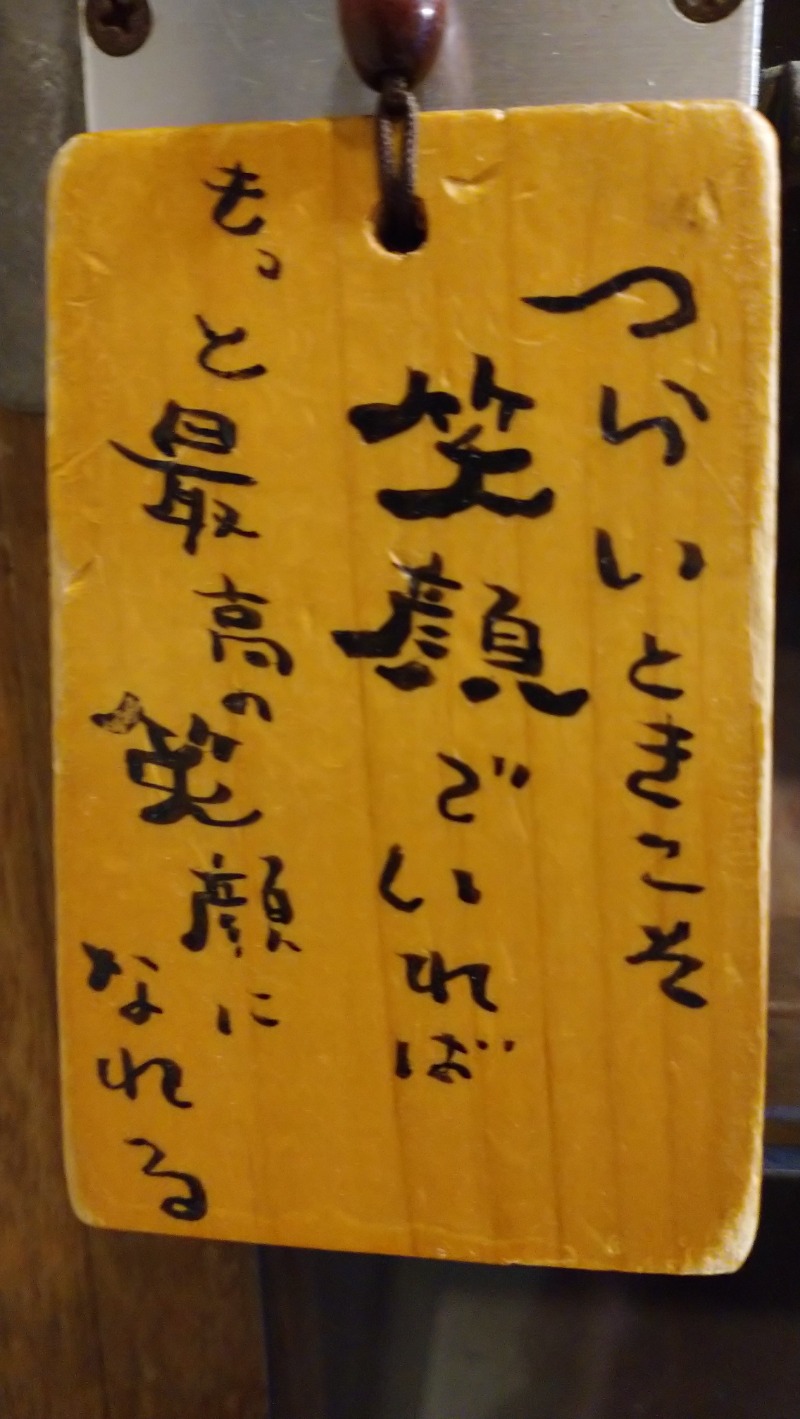 つらいときこそ
笑顔でいれば
もっと最高の笑顔に
なれる